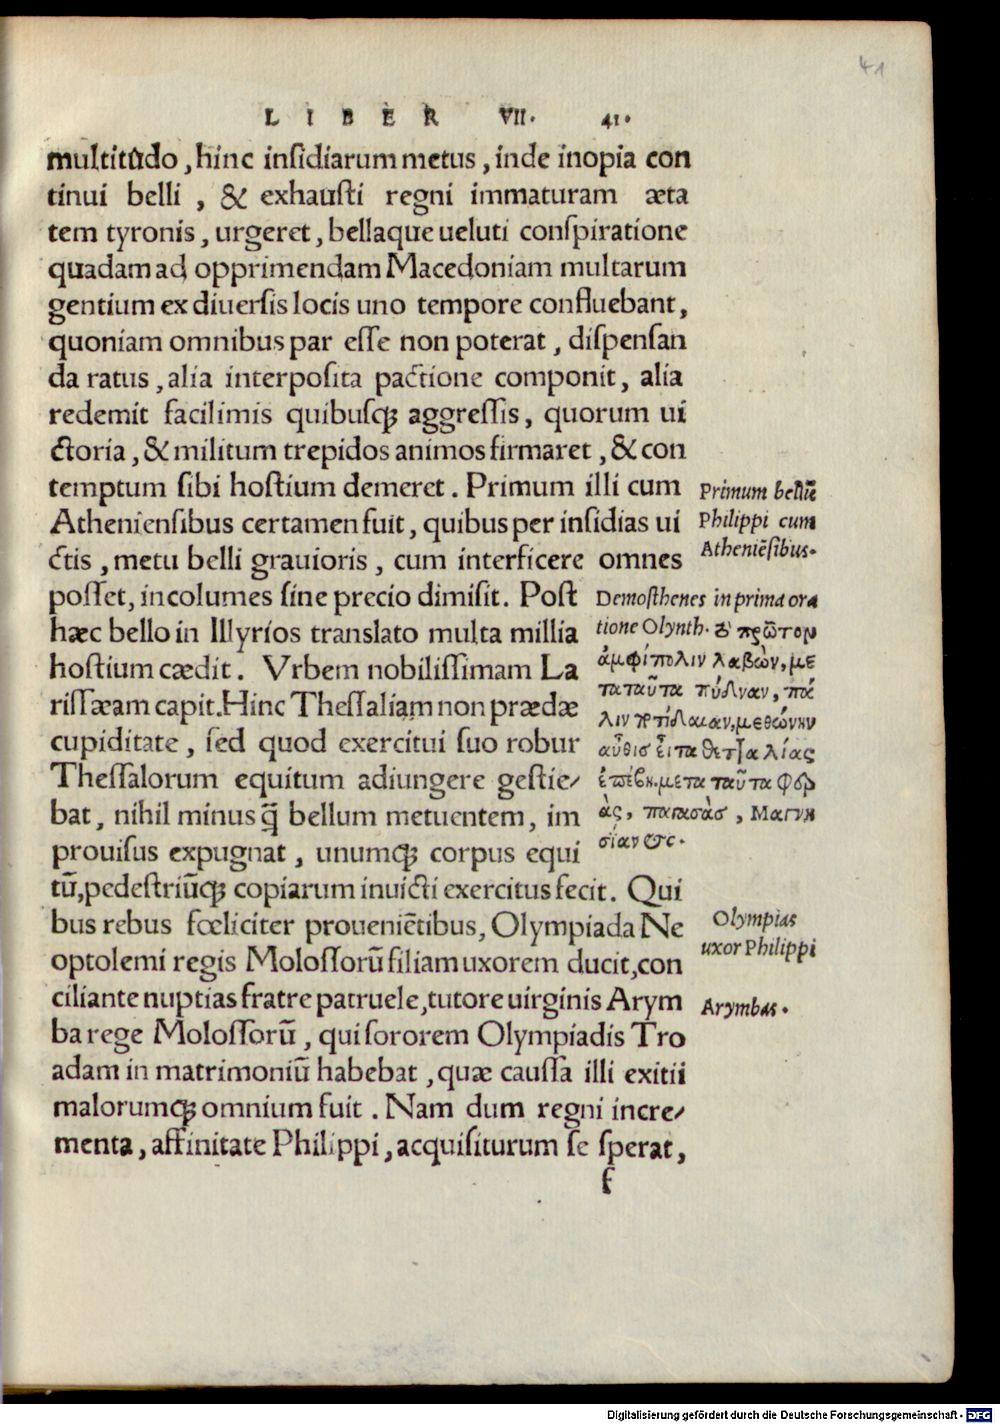 41
LIBER VII. 41.
multitudo, hinc insidiarum metus, inde inopia con
tinui belli, & exhausti regni immaturam æta
tem tyronis, urgeret, bellaque ueluti conspiratione
quadam ad opprimendam Macedoniam multarum
gentium ex diuersis locis uno tempore confluebant,
quoniam omnibus par esse non poterat, dispensan
da ratus, alia interposita pactione componit, alia
redemit facilimis quibusqꝫ aggressis, quorum ui
ctoria, & militum trepidos animos firmaret, & con
temptum sibi hostium demeret. Primum illi cum
Atheniensibus certamen fuit, quibus per insidias ui
ctis, metu belli grauioris, cum interficere omnes
posset, incolumes sine precio dimisit. Post
hæc bello in Illyrios translato multa millia
hostium cædit. Vrbem nobilissimam La
rissæam capit. Hinc Thessaliam non prædæ
cupiditate, sed quod exercitui suo robur
Thessalorum equitum adiungere gestie/
bat, nihil minus q̄ bellum metuentem, im
prouisus expugnat, unumqꝫ corpus equi
tū, pedestriūqꝫ copiarum inuicti exercitus fecit. Qui
bus rebus fœliciter proueniētibus, Olympiada Ne
optolemi regis Molossorū filiam uxorem ducit, con
ciliante nuptias fratre patruele, tutore uirginis Arym
ba rege Molossorū, qui sororem Olympiadis Tro
adam in matrimoniū habebat, quæ caussa illi exitii
malorumqꝫ omnium fuit. Nam dum regni incre/
menta, affinitate Philippi, acquisiturum se sperat,
f
Primum bellū
Philippi cum
Atheniēsibus.
Demosthenes in prima ora
tione Olynth. πρῶτον
ἀμφίπολιν λαβὼν, με
τα ταῦτα πύδναν, πά
λιν ποτίδαιαν, μεθώνην
αὖθις εἶτα θετταλίας
ἐπέβη. μετα ταῦτα φερ
ὰς, παγασὰς, Μαγνη
σίαν &c.
Olympias
uxor Philippi
Arymbas.
Digitalisierung gefördert durch die Deutsche Forschungsgemeinschaft - DFG